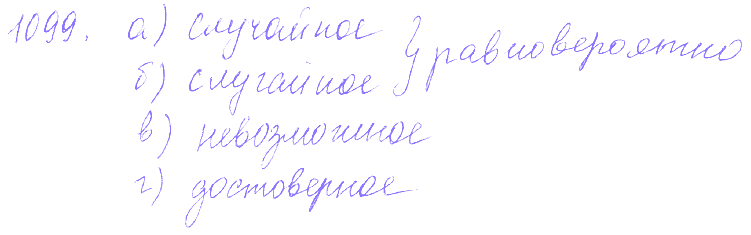 1099. а) случайное } равновероятно
б) случайное
в) невозможное
г) достоверное